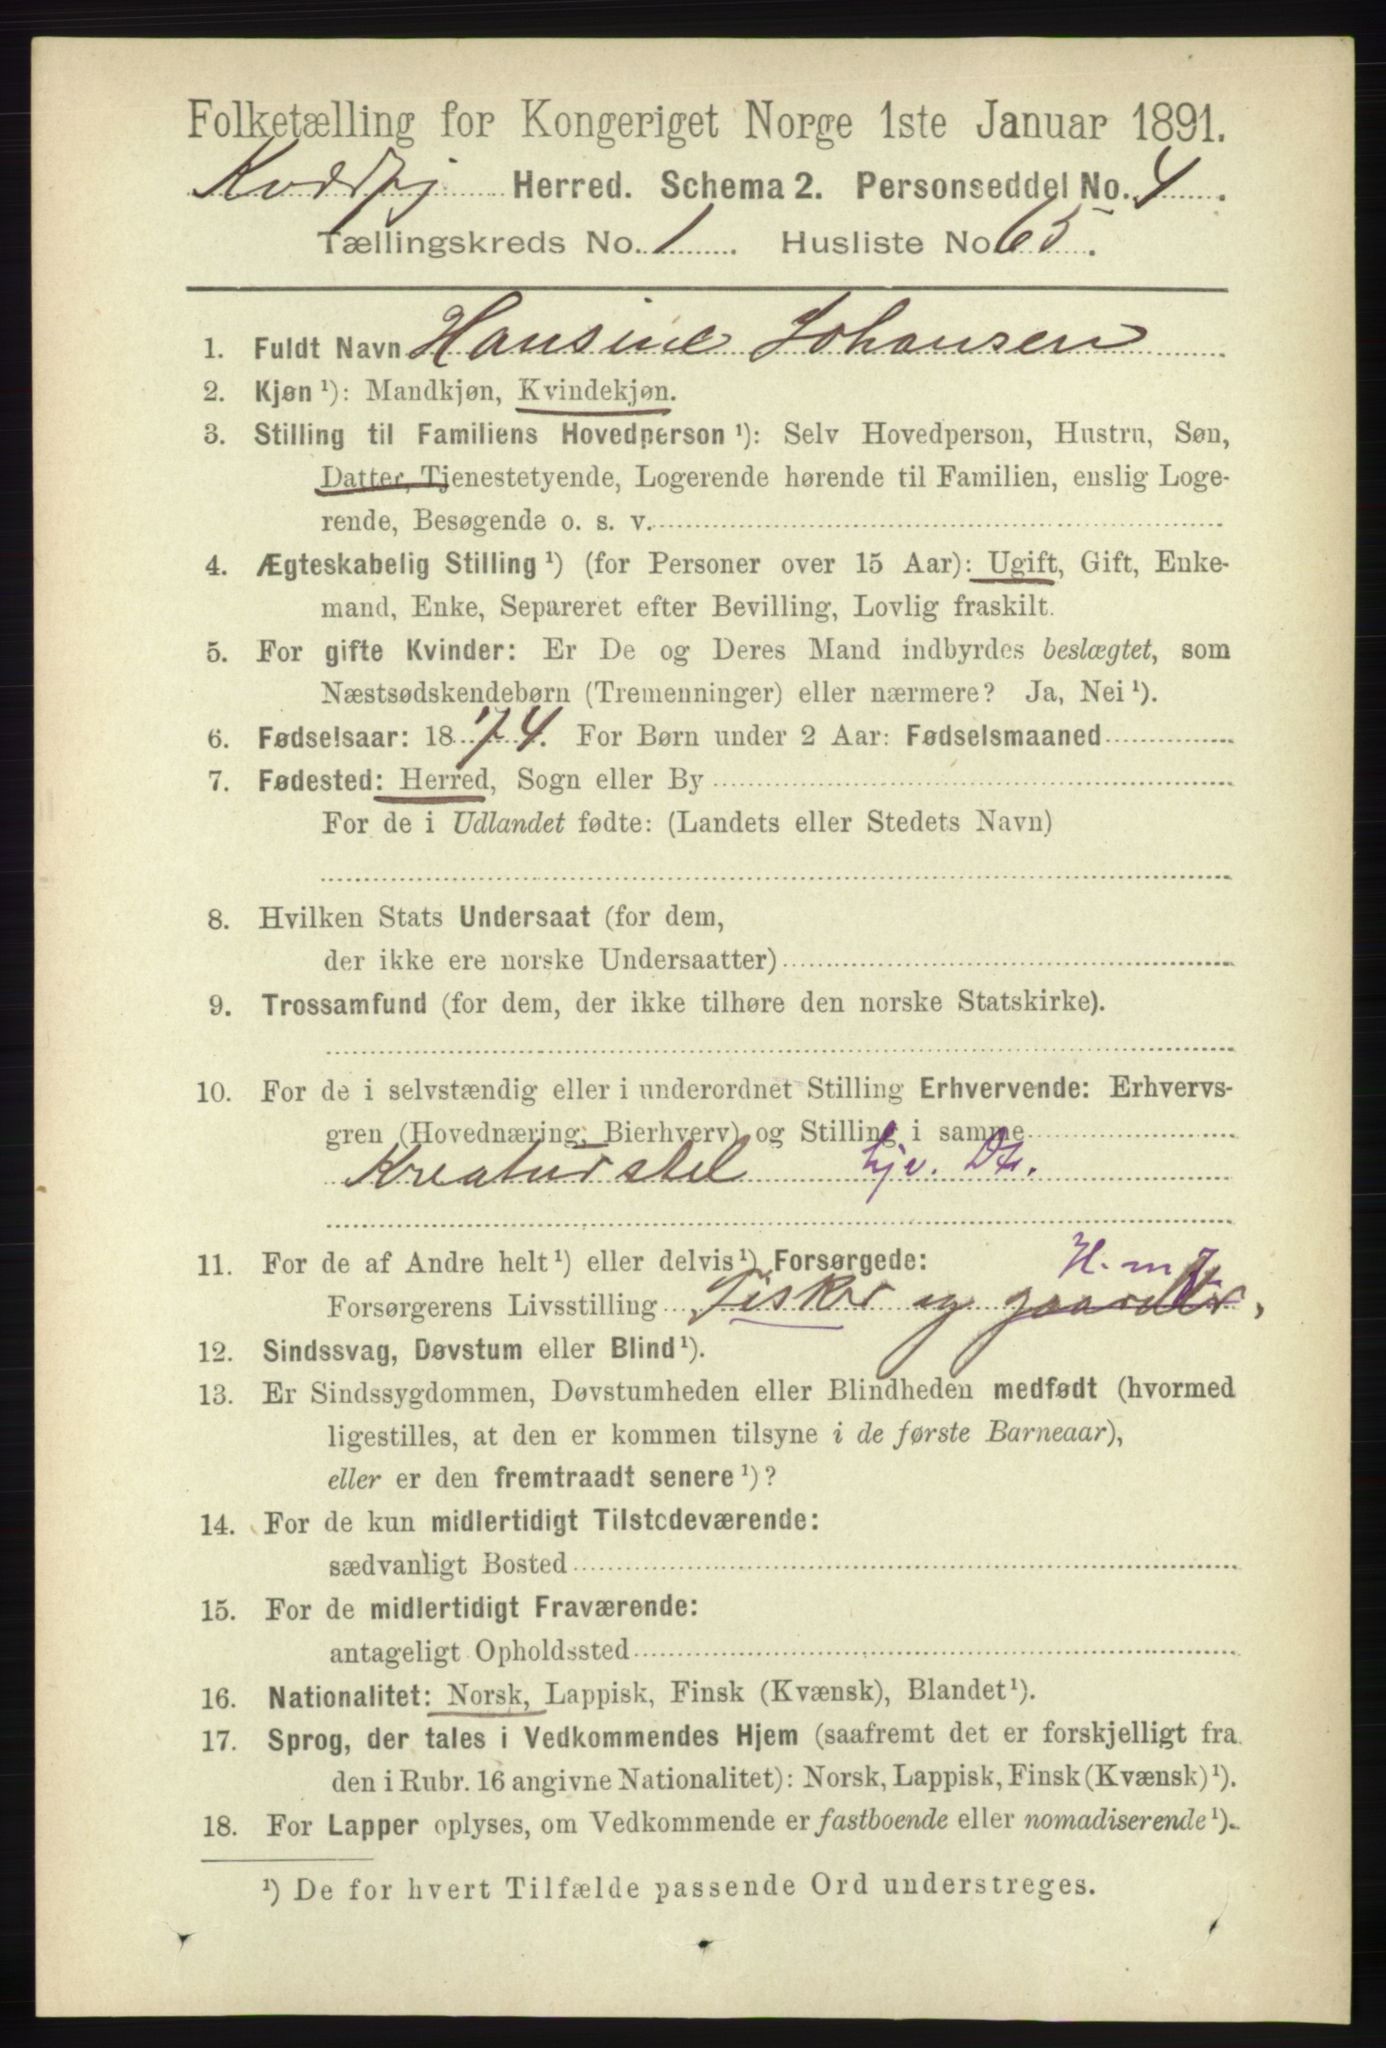 Folketælling for Kongeriget Norge 1ste Januar 1891.
Kvæfj Herred. Schema 2. Personseddel No. 4.
Tællingskreds No. 1. Husliste No. 65.
1. Fuldt Navn Hansine Johansen
2. Kjøn ¹): Mandkjøn, Kvindekjøn.
3. Stilling til Familiens Hovedperson ¹): Selv Hovedperson, Hustru, Søn,
Datter, Tjenestetyende, Logerende hørende til Familien, enslig Loge-
rende, Besøgende o. s. v.
4. Ægteskabelig Stilling ¹) (for Personer over 15 Aar): Ugift, Gift, Enke-
mand, Enke, Separeret efter Bevilling, Lovlig fraskilt.
5. For gifte Kvinder: Er De og Deres Mand indbyrdes beslægtet, som
Næstsødskendebørn (Tremenninger) eller nærmere? Ja, Nei ¹).
6. Fødselsaar: 1874. For Børn under 2 Aar: Fødselsmaaned
7. Fødested: Herred, Sogn eller By
For de i Udlandet fødte: (Landets eller Stedets Navn)
8. Hvilken Stats Undersaat (for dem,
der ikke ere norske Undersaatter)
9. Trossamfund (for dem, der ikke tilhøre den norske Statskirke).
10. For de i selvstændig eller i underordnet Stilling Erhvervende: Erhvervs-
gren (Hovednæring, Bierhverv) og Stilling i samme
Kreaturstel hjv. Dt.
11. For de af Andre helt ¹) eller delvis ¹) Forsørgede: H. m
Forsørgerens Livsstilling Fisker og gaardbr,
12. Sindssvag, Døvstum eller Blind ¹).
13. Er Sindssygdommen, Døvstumheden eller Blindheden medfødt (hvormed
ligestilles, at den er kommen tilsyne i de første Barneaar),
eller er den fremtraadt senere ¹)?
14. For de kun midlertidigt Tilstedeværende:
sædvanligt Bosted
15. For de midlertidigt Fraværende:
antageligt Opholdssted
16. Nationalitet: Norsk, Lappisk, Finsk (Kvænsk), Blandet ¹).
17. Sprog, der tales i Vedkommendes Hjem (saafremt det er forskjelligt fra
den i Rubr. 16 angivne Nationalitet): Norsk, Lappisk, Finsk (Kvænsk) ¹).
18. For Lapper oplyses, om Vedkommende er fastboende eller nomadiserende ¹).
¹) De for hvert Tilfælde passende Ord understreges.